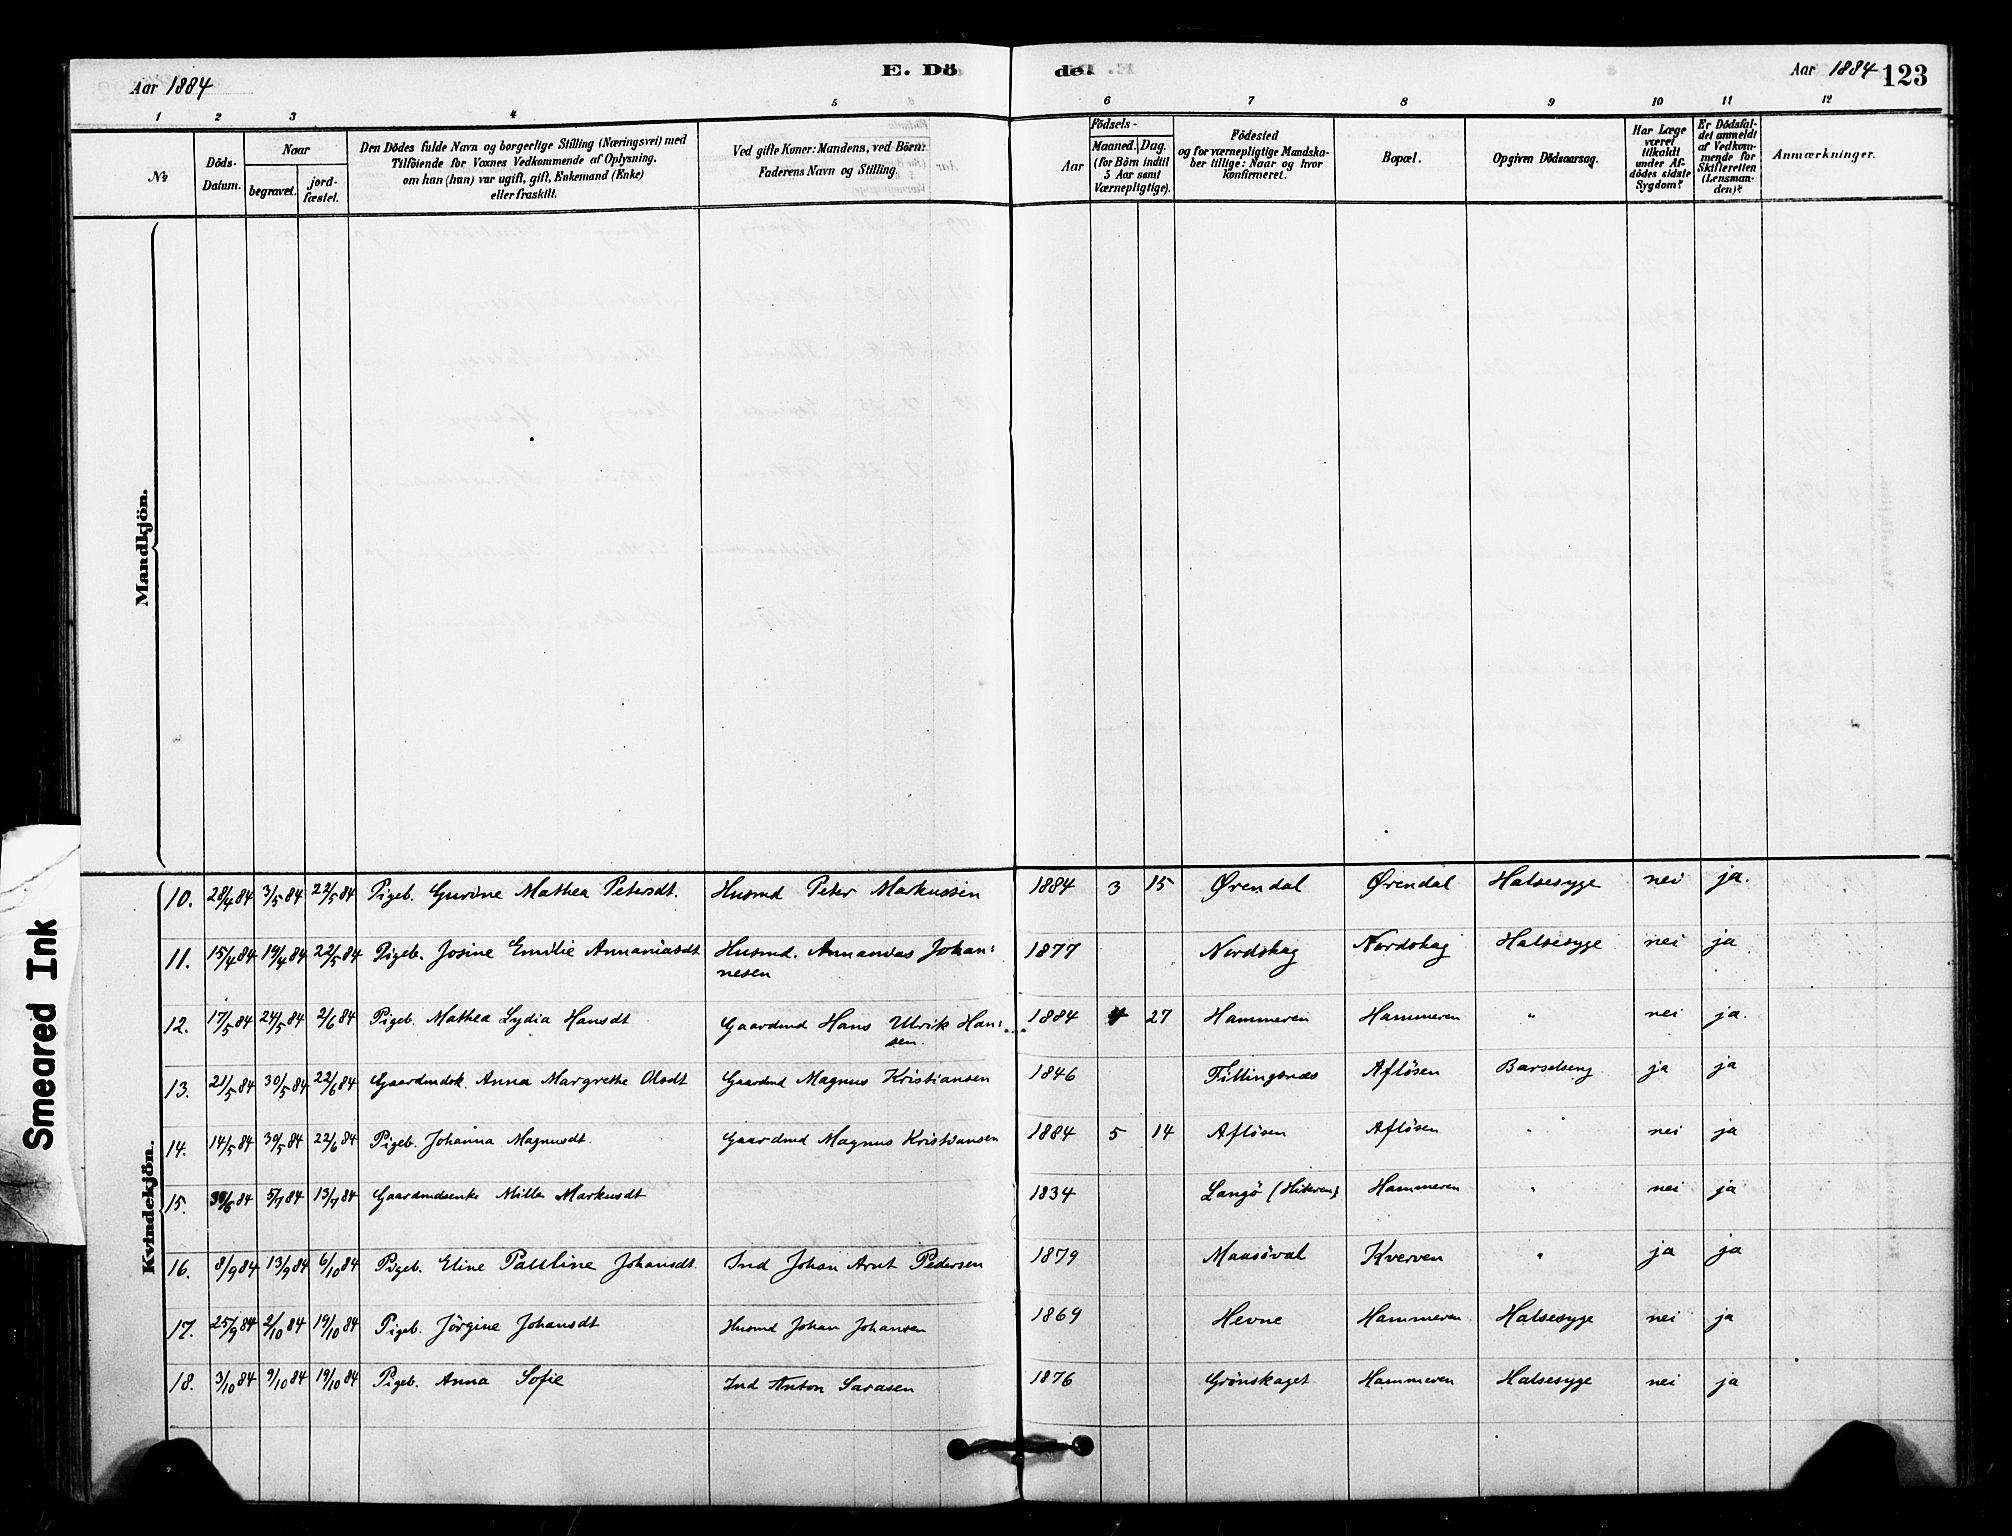 Aar 1884 E. Dö de. Aar 1884 123
1 2 3 4 5 6 7 8 9 10 11 12
No
Döds-
Datum.
Naar
begravet.
jord-
fæstet.
Den Dödes fulde Navn og borgerlige Stilling (Næringsvei) med
Tilföiende for Voxnes Vedkommende af Oplysning,
om han (hun) var ugift, gift, Enkemand (Enke)
eller fraskilt.
Ved gifte Koner: Mandens, ved Börn:
Faderens Navn og Stilling.
Födsels-
Aar
Maaned. Dag.
(for Börn indtil
5 Aar samt
Værnepligtige).
Födested
og for værnepligtige Mandska-
ber tillige: Naar og hvor
konfirmeret.
Bopæl.
Opgiven Dödsaarsag.
Har Læge
været
tilkaldt
under Af-
dödes sidste
Sygdom?
Er Dödsfal-
det anmeldt
af Vedkom-
mende for
Skifteretten
(Lensman-
den)?
Anmærkninger.
Mandkjön.
Kvindekjön.
10. 28/4 84 3/5 84 22/5 84 Pigeb. Gurine Mathea Petersdt. Husmd Peter Markussen 1884 3 15 Ørendal Ørendal Halsesyge nei ja.
11. 15/4 84 19/4 84 22/5 84 Pigeb. Josine Emilie Annaniasdt Husmd. Annanias Johan:
nesen 1877 Nordskag Nordskag Halsesyge nei ja
12. 17/5 84 24/5 84 2/6 84 Pigeb. Mathea Lydia Hansdt Gaardmd Hans Ulrik Han:
sen. 1884 4 27 Hammeren Hammeren " nei ja.
13. 21/5 84 30/5 84 22/6 84 Gaardmdsk. Anna Margrethe Olsdt Gaardmd Magnus Kristiansen 1846 Fillingsnæs Afløsen Barselseng ja ja
14. 14/5 84 30/5 84 22/6 84 Pigeb. Johanna Magnusdt. Gaardmd Magnus Kristiansen 1884 5 14 Afløsen Afløsen " nei ja
15. 30/6 84 5/7 84 13/7 84 Gaardmdsenke Mille Markusdt 1834 Langö (Hiteren) Hammeren " nei ja
16. 8/9 84 13/9 84 6/10 84 Pigeb. Eline Pauline Johansdt. Ind Johan Arnt Pedersen 1879 Maasöval Kverven " ja ja
17. 25/9 84 2/10 84 19/10 84 Pigeb. Jörgine Johansdt Husmd Johan Johansen 1869 Hevne Hammeren Halsesyge nei ja
18. 3/10 84 9/10 84 19/10 84 Pigeb. Anna Sofie Ind Anton Sarasen 1876 Grönskaget Hammeren Halsesyge nei ja
Smeared Ink